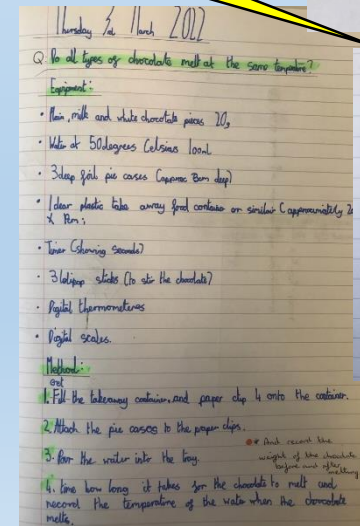 Thursday 3rd March 2022
Q. Do all types of chocolate melt at the same temperature?
Equipment:
• Plain, milk and white chocolate pieces 20g
• Water at 50 degrees Celsius 100ml
• 3 deep foil pie cases (approx 3cm deep)
• 1 clear plastic take away food container or similar (approximately
• Timer (showing seconds)
• 3 lollipop sticks (to stir the chocolate)
• Digital thermometeres
• Digital scales.
Method:
1. the takeaway container, and paper clip 4 onto the container.
2. Attach the pie cases to the paper clips.
3. Pour the water into the tray.
* And record the
weight of the chocolate
before and after
melting
4. time how long it takes for the chocolate to melt and
record the temperature of the water when the chocolate
melts.